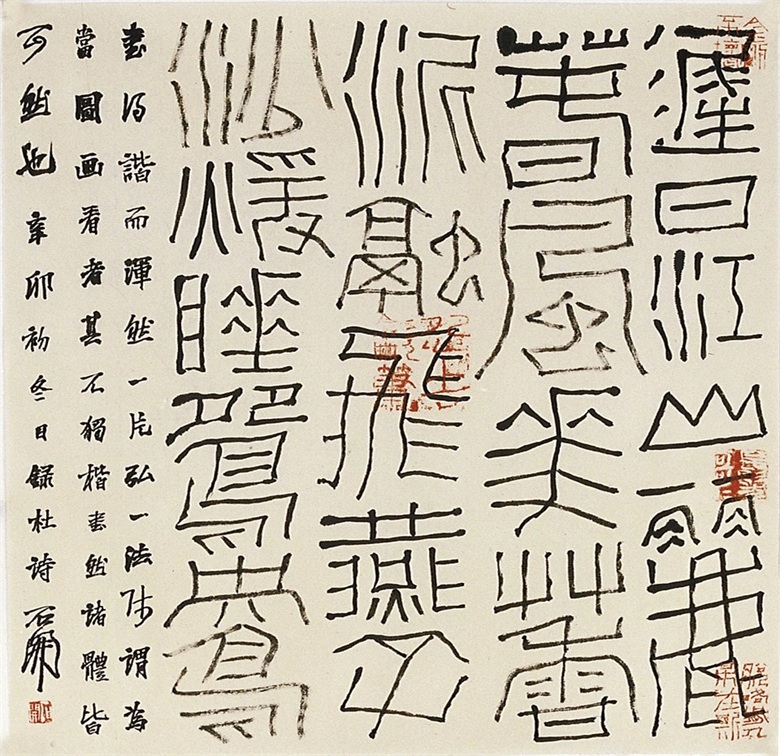 遲日江山麗
春風花草香
泥融飛燕子
沙暖睡鴛鴦
書得諧而渾然一片弘一法師謂為
當圖画看者其不獨楷書然諸體皆
可然也辛卯初冬日録杜詩石開